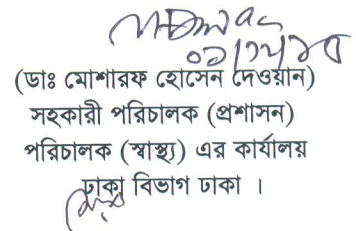 (ডাঃ মোশারফ হোসেন দেওয়ান)
সহকারী পরিচালক (প্রশাসন)
পরিচালক (স্বাস্থ্য) এর কার্যালয়
ঢাকা বিভাগ ঢাকা ।